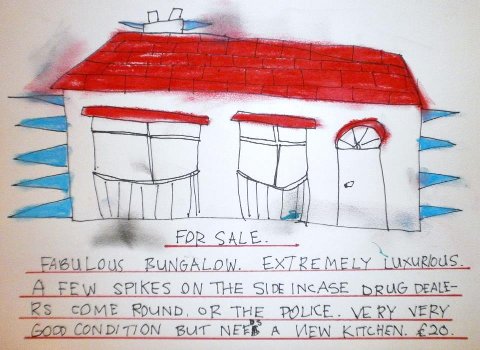 FOR SALE.
FABULOUS BUNGALOW. EXTREMELY LUXURIOUS.
A FEW SPIKES ON THE SIDE INCASE DRUG DEALE-
RS COME ROUND. OR THE POLICE. VERY VERY
GOOD CONDITION BUT NEEDS A NEW KITCHEN. £20.